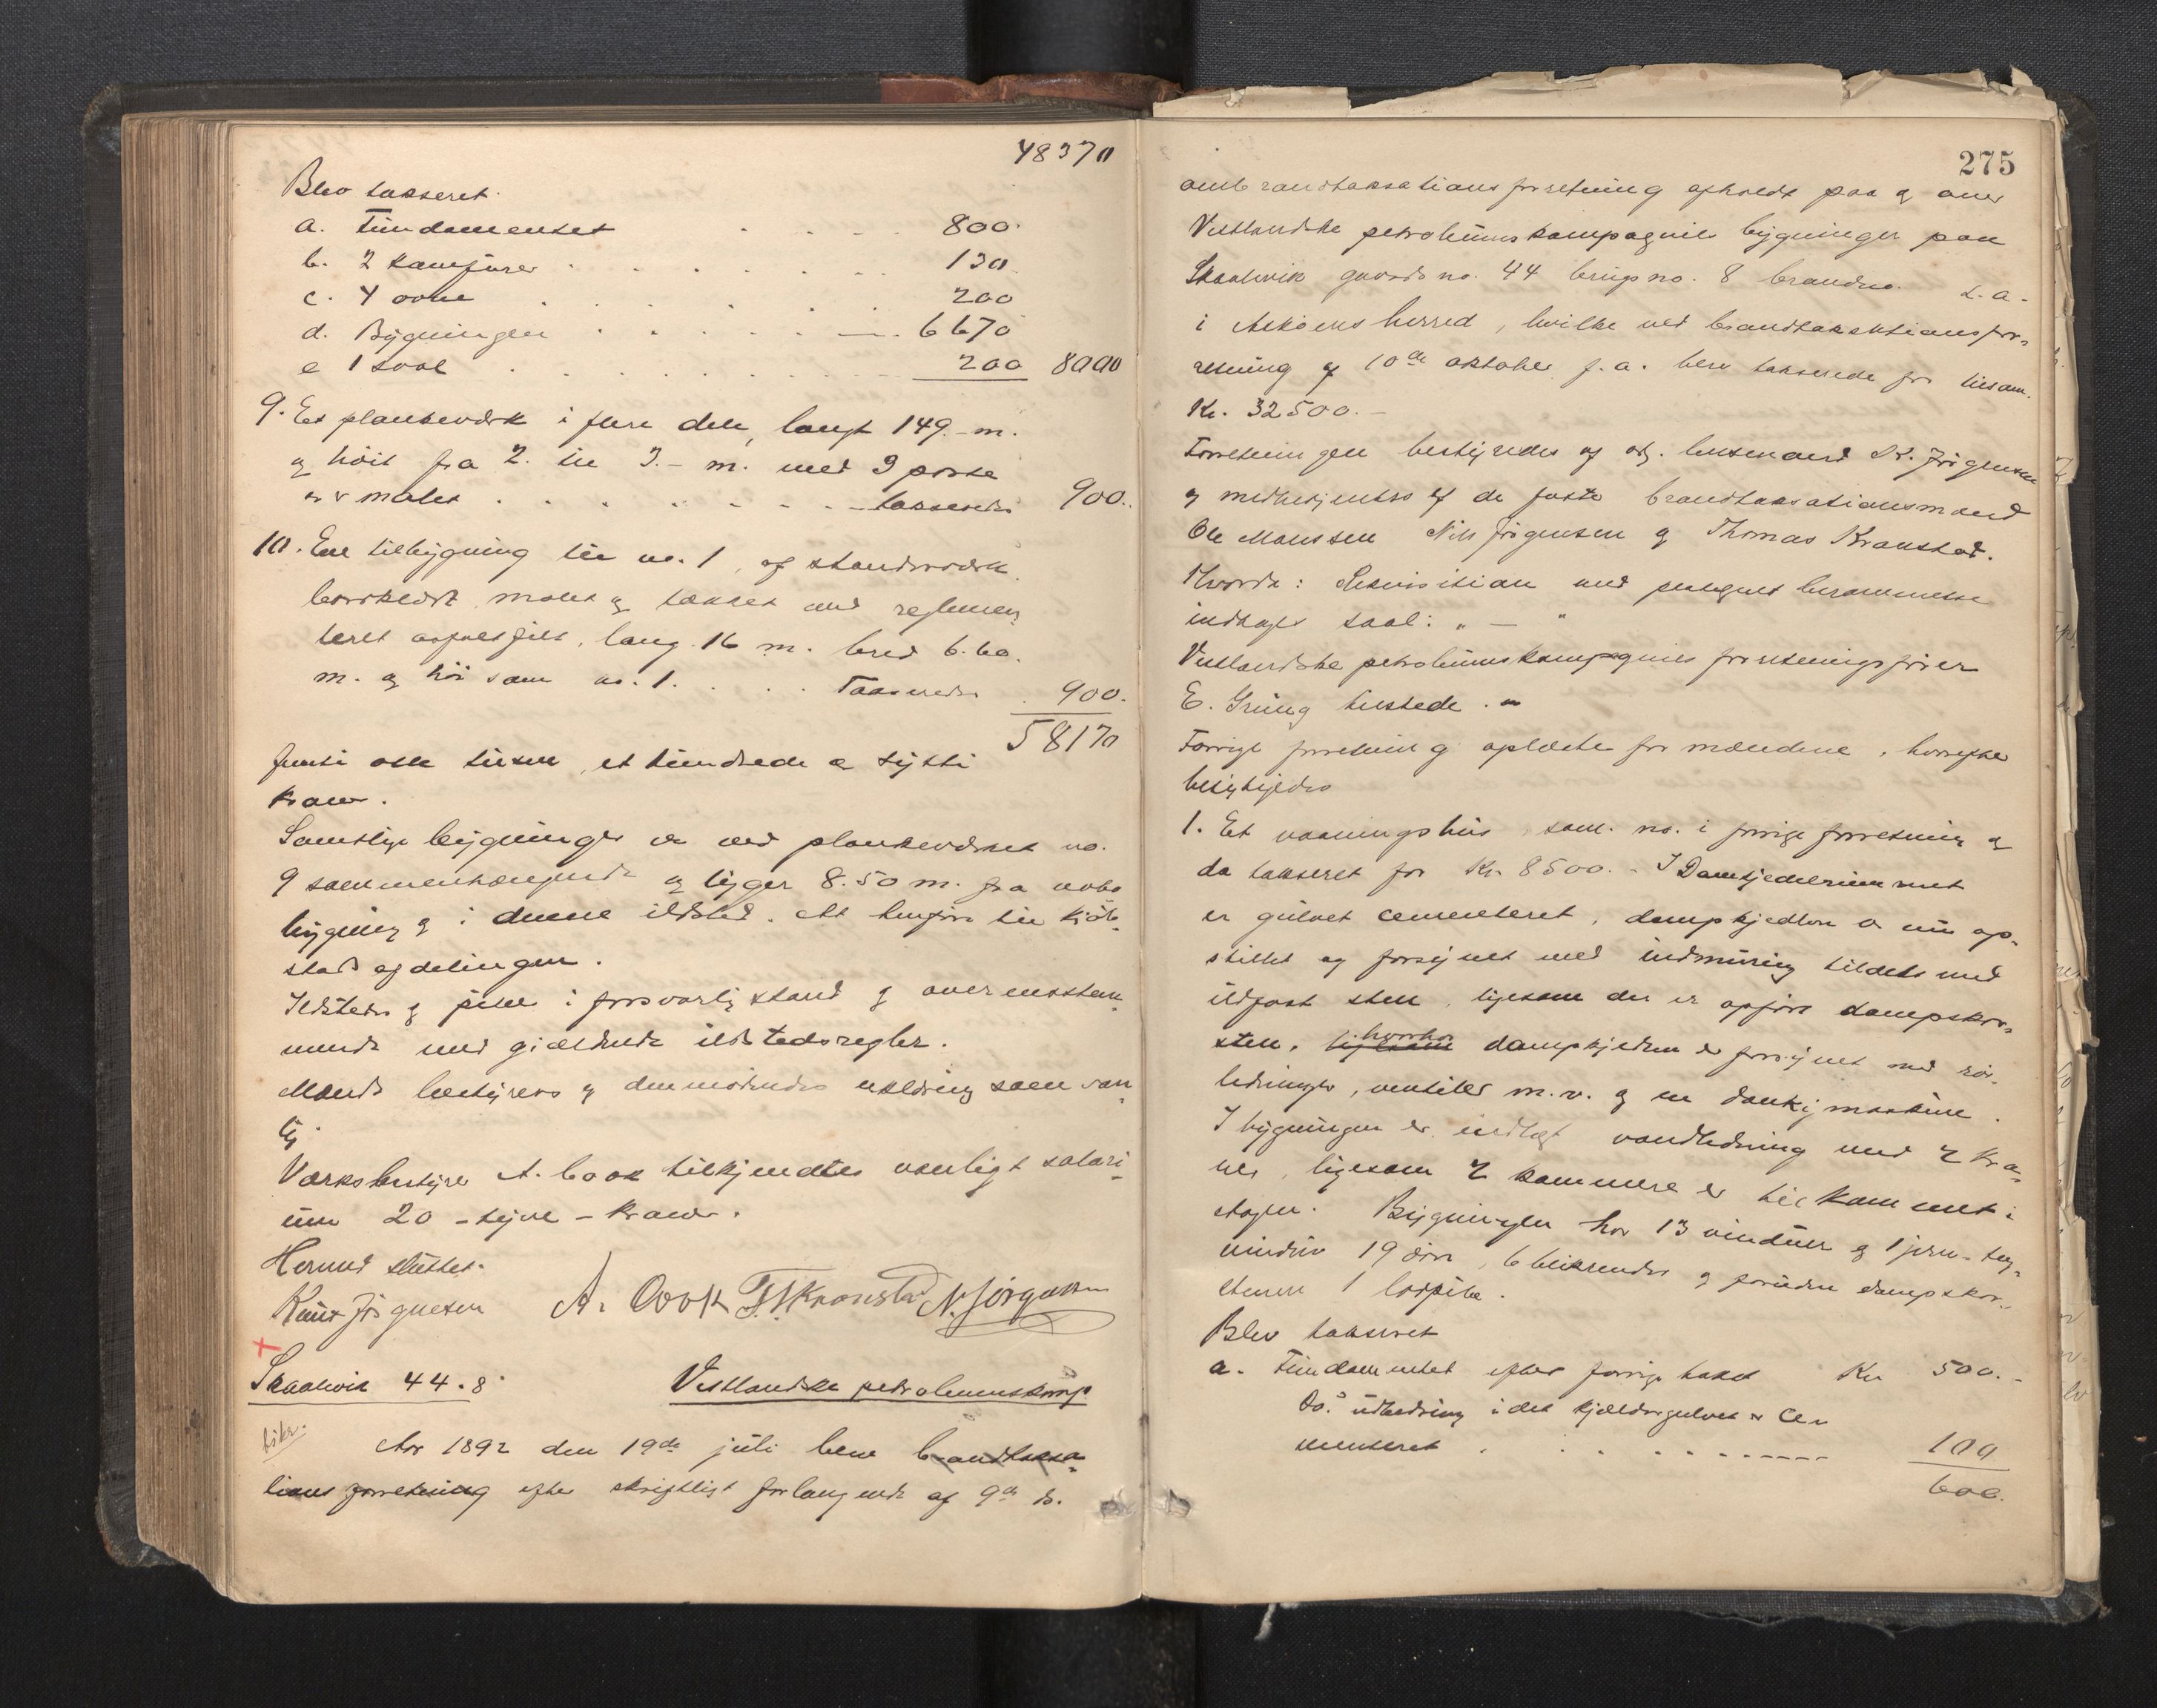 48370
Blev takseret.
a. Fundamentet . . . . 800.
b. 2 kamfiner . . . . 130
c. 4 ovne . . . . 200
d. Bygningen . . . . 6670
e 1 sval . . . . 200 8000
9. Et plankeværk i flere dele, langt 149.- m.
og höit fra 2. til 3.- m. med 3 porte
er malet . . . . takseredes 900.
10. En tilbygning til no. 1, af standværk
bordklædt, malet og tækket med reglemen,
teret asfaltfilt, lang 16 m. bred 6.60.
m. og höi som no. 1. . . . Takseredes 900.
58170
femti otte tusen, et hundrede og sytti
kroner.
Samtlige bygninger er ved plankeværket no.
9 sammenhængende og ligger 8.50 m. fra nabo
bygning og i denne ildsted. At henföre til kjöb-
stads afdelingen.
Ildsteder og piber i forsvarlig stand og overensstem-
mende med gjældende ildstedsregler.
Mænds bestyrers og de mödendes erklæring som van-
lig.
Værksbestyrer A. Cook tilkjendtes vanligt salari-
um 20 - tyve - kroner.
Hermed sluttet.
Knut Jörgensen A. Cook T. Kronstad N. Jörgensen
Skaalvik 44.8 Vestlandske petroleumskomp.
Aar 1892 den 19de juli blev brandtaksa-
tions forretning efter skriftligt forlangende af 9de ds.
275
ombrandtaksationsforretning afholdt paa og over
Vestlandske petroleumskompagnies bygninger paa
Skaalvik gaards no. 44 brugs no. 8 brandno. L.a.
i Asköens herred, hvilke ved brandtakstionsfor-
retning af 10de oktober f.a. blev takserede for tilsam.
Kr. 32500.-
Forretningen bestyredes af ordf. lensmand K. Jörgensen
og medbetjentes af de faste brandtaksationsmænd
Ole Monssen Nils Jörgensen og Thomas Kronstad.
Hvorda: Rekvisition med paategnet berammelse
indtages saal: " — "
Vestlandske petroleumskompagnies forretningsförer
E. Grung tilstede.
Forrige forretning oplæstes for mændene, hvorefter
besigtigedes
1. Et vaaningshus, sam. no. i forrige forretning og
da takseret for Kr. 8500.- I Damkjedelrummet
er gulvet cementeret, dampkjedlen er nu op-
stillet og forsynet med indmuring tildels med
ildfast sten, ligesom der er opfört dampskor-
sten, hvorhos dampkjedlen er forsynet med rör-
ledninger, ventiler m.v. og en donkymaskine.
I bygningen er indlagt vandledning med 2 kra-
ner, ligesom 2 kammere er tilkommet i
etagen. Bygningen har 13 vinduer og 1 jern-tag-
vindu 19 döre, 6 og foruden dampskor-
stenen 1
Blev takseret
a. Fundamentet efter forrige takst Kr. 500.-
Do. udbedring idet kjeldergulvet er ce-
menteret . . . . 100
600.